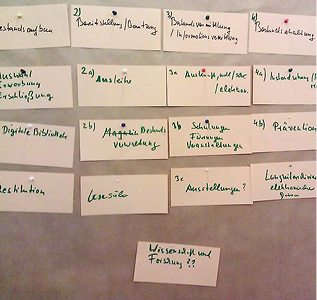 estandsaufbau
2)
Bereitstellung/Benutzung
3)
Bestandsvermittlung
/Informationsvermittlung
4)
Bestandserhaltung
Auswahl
Erwerbung
Erschließung
2a)
Ausleihe
3a
Auskunft,
elektron.
4a) Instandhaltung
Digitale Bibliothek
2b)
Magazin Bestands
verwaltung
3b
Schulungen
Führungen
Veranstaltungen
4b)
Prävention
estitution
Lesesäle
3c
Ausstellungen?
Langzeitarchivierung
elektronischer
Daten
Wissenschaft und
Forschung??